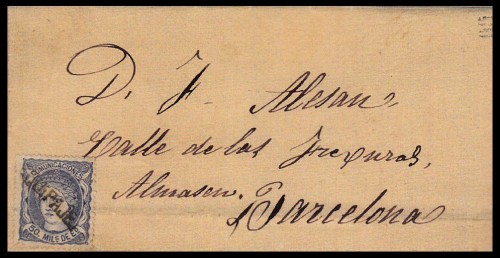 D. F. Alesan
Calle de las Trexuras,
Almasen.
Barcelona
COMUNICACIONES
50 MILS DE E